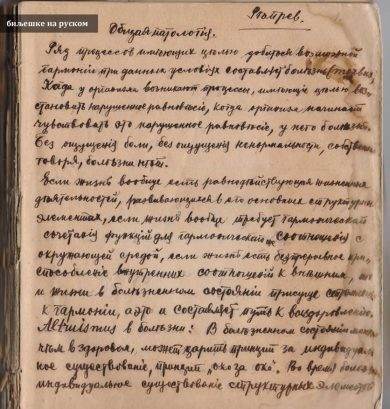 билешке на руском
Общая патологія.
Ряд процессов имеющих целью добиться возможной
гармоніи при данных условіях составляет болезнь
Когда у организма возникают процессы, имеющіе целью воз-
становить нарушенное равновесіе, когда организм начинает
чувствовать это нарушенное равновесіе, у него болезнь.
Без ощущенія боли, без ощущенія ненормальности, собственно
говоря, болезни нет.
Если жизнь вообще есть равнодействующая
деятельностей, развивающихся в его основных структурных
элементах, если жизнь вообще требует гармоническаго
сочетанія функцій для гармоническаго соотношенія с
окружающей средой, если жизнь есть безпрерывное при-
способленіе внутренних соотношеній к внешним, то
и жизни в болезненном состояніи присуще стремленіе
к гармоніи, а это и составляет путь к выздоровленію.
в болезни: В болезненном состояніи
чем в здоровьи, может царить принцип за индивидуаль-
ное существованіе, принцип „око за око". Во время болезни
индивидуальное существованіе структурных элементов